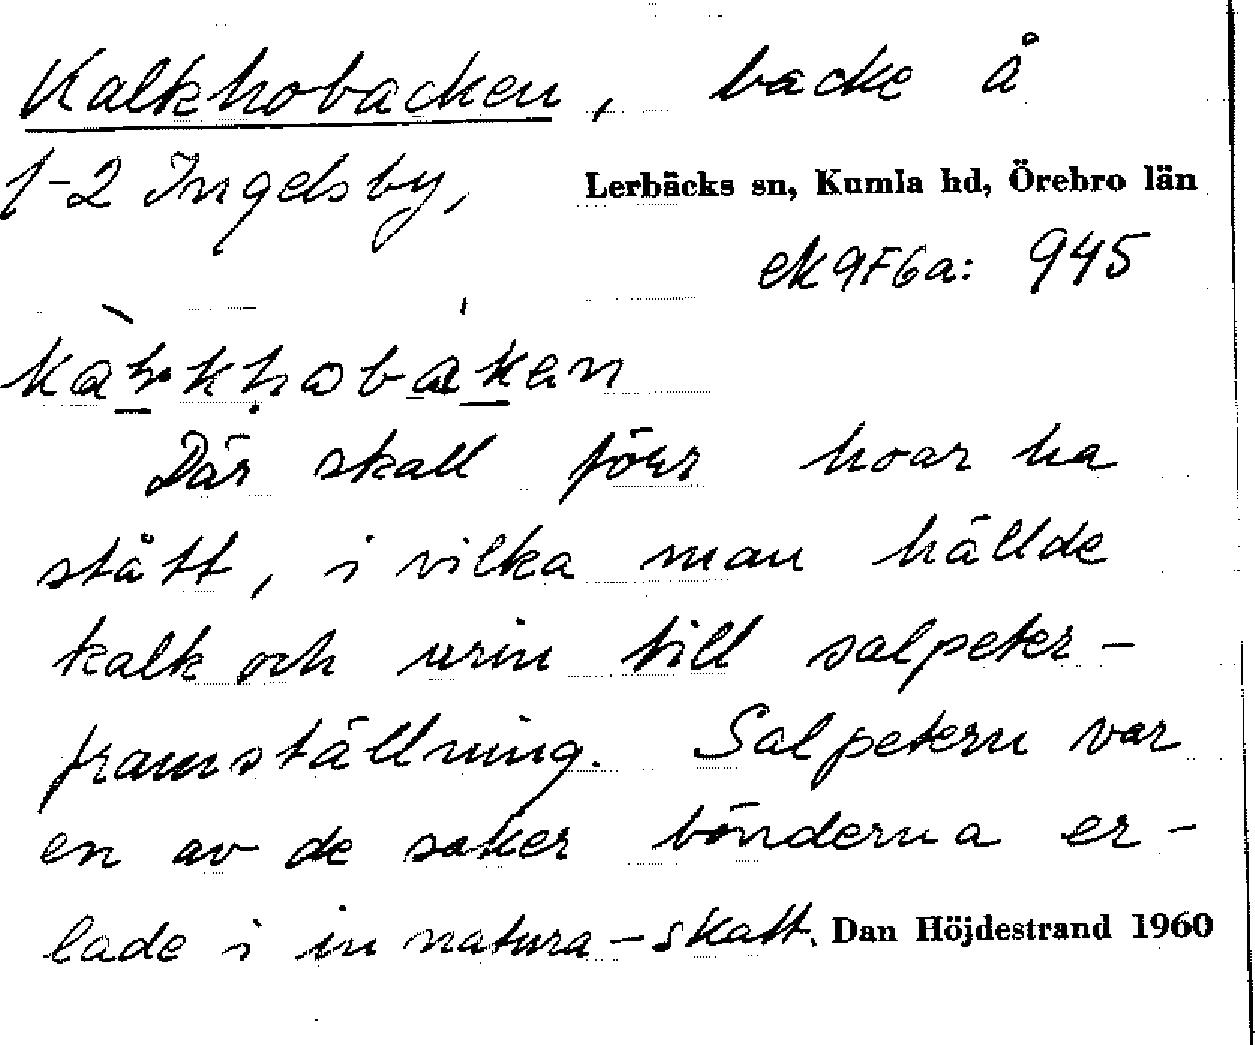 Kalkhobacken, backe å
1-2 Ingelsby, Lerbäcks sn, Kumla hd, Örebro län
ek 9F6a: 945
Där skall förr hoar ha
stått, i vilka man hällde
kalk och urin till salpeter-
framställning. Salpetern var
en av de saker bönderna er-
lade i in natura-skatt. Dan Höjdestrand 1960